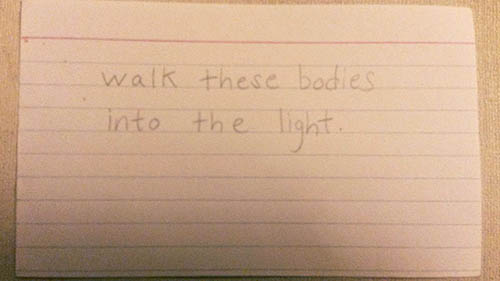 walk these bodies
into the light.